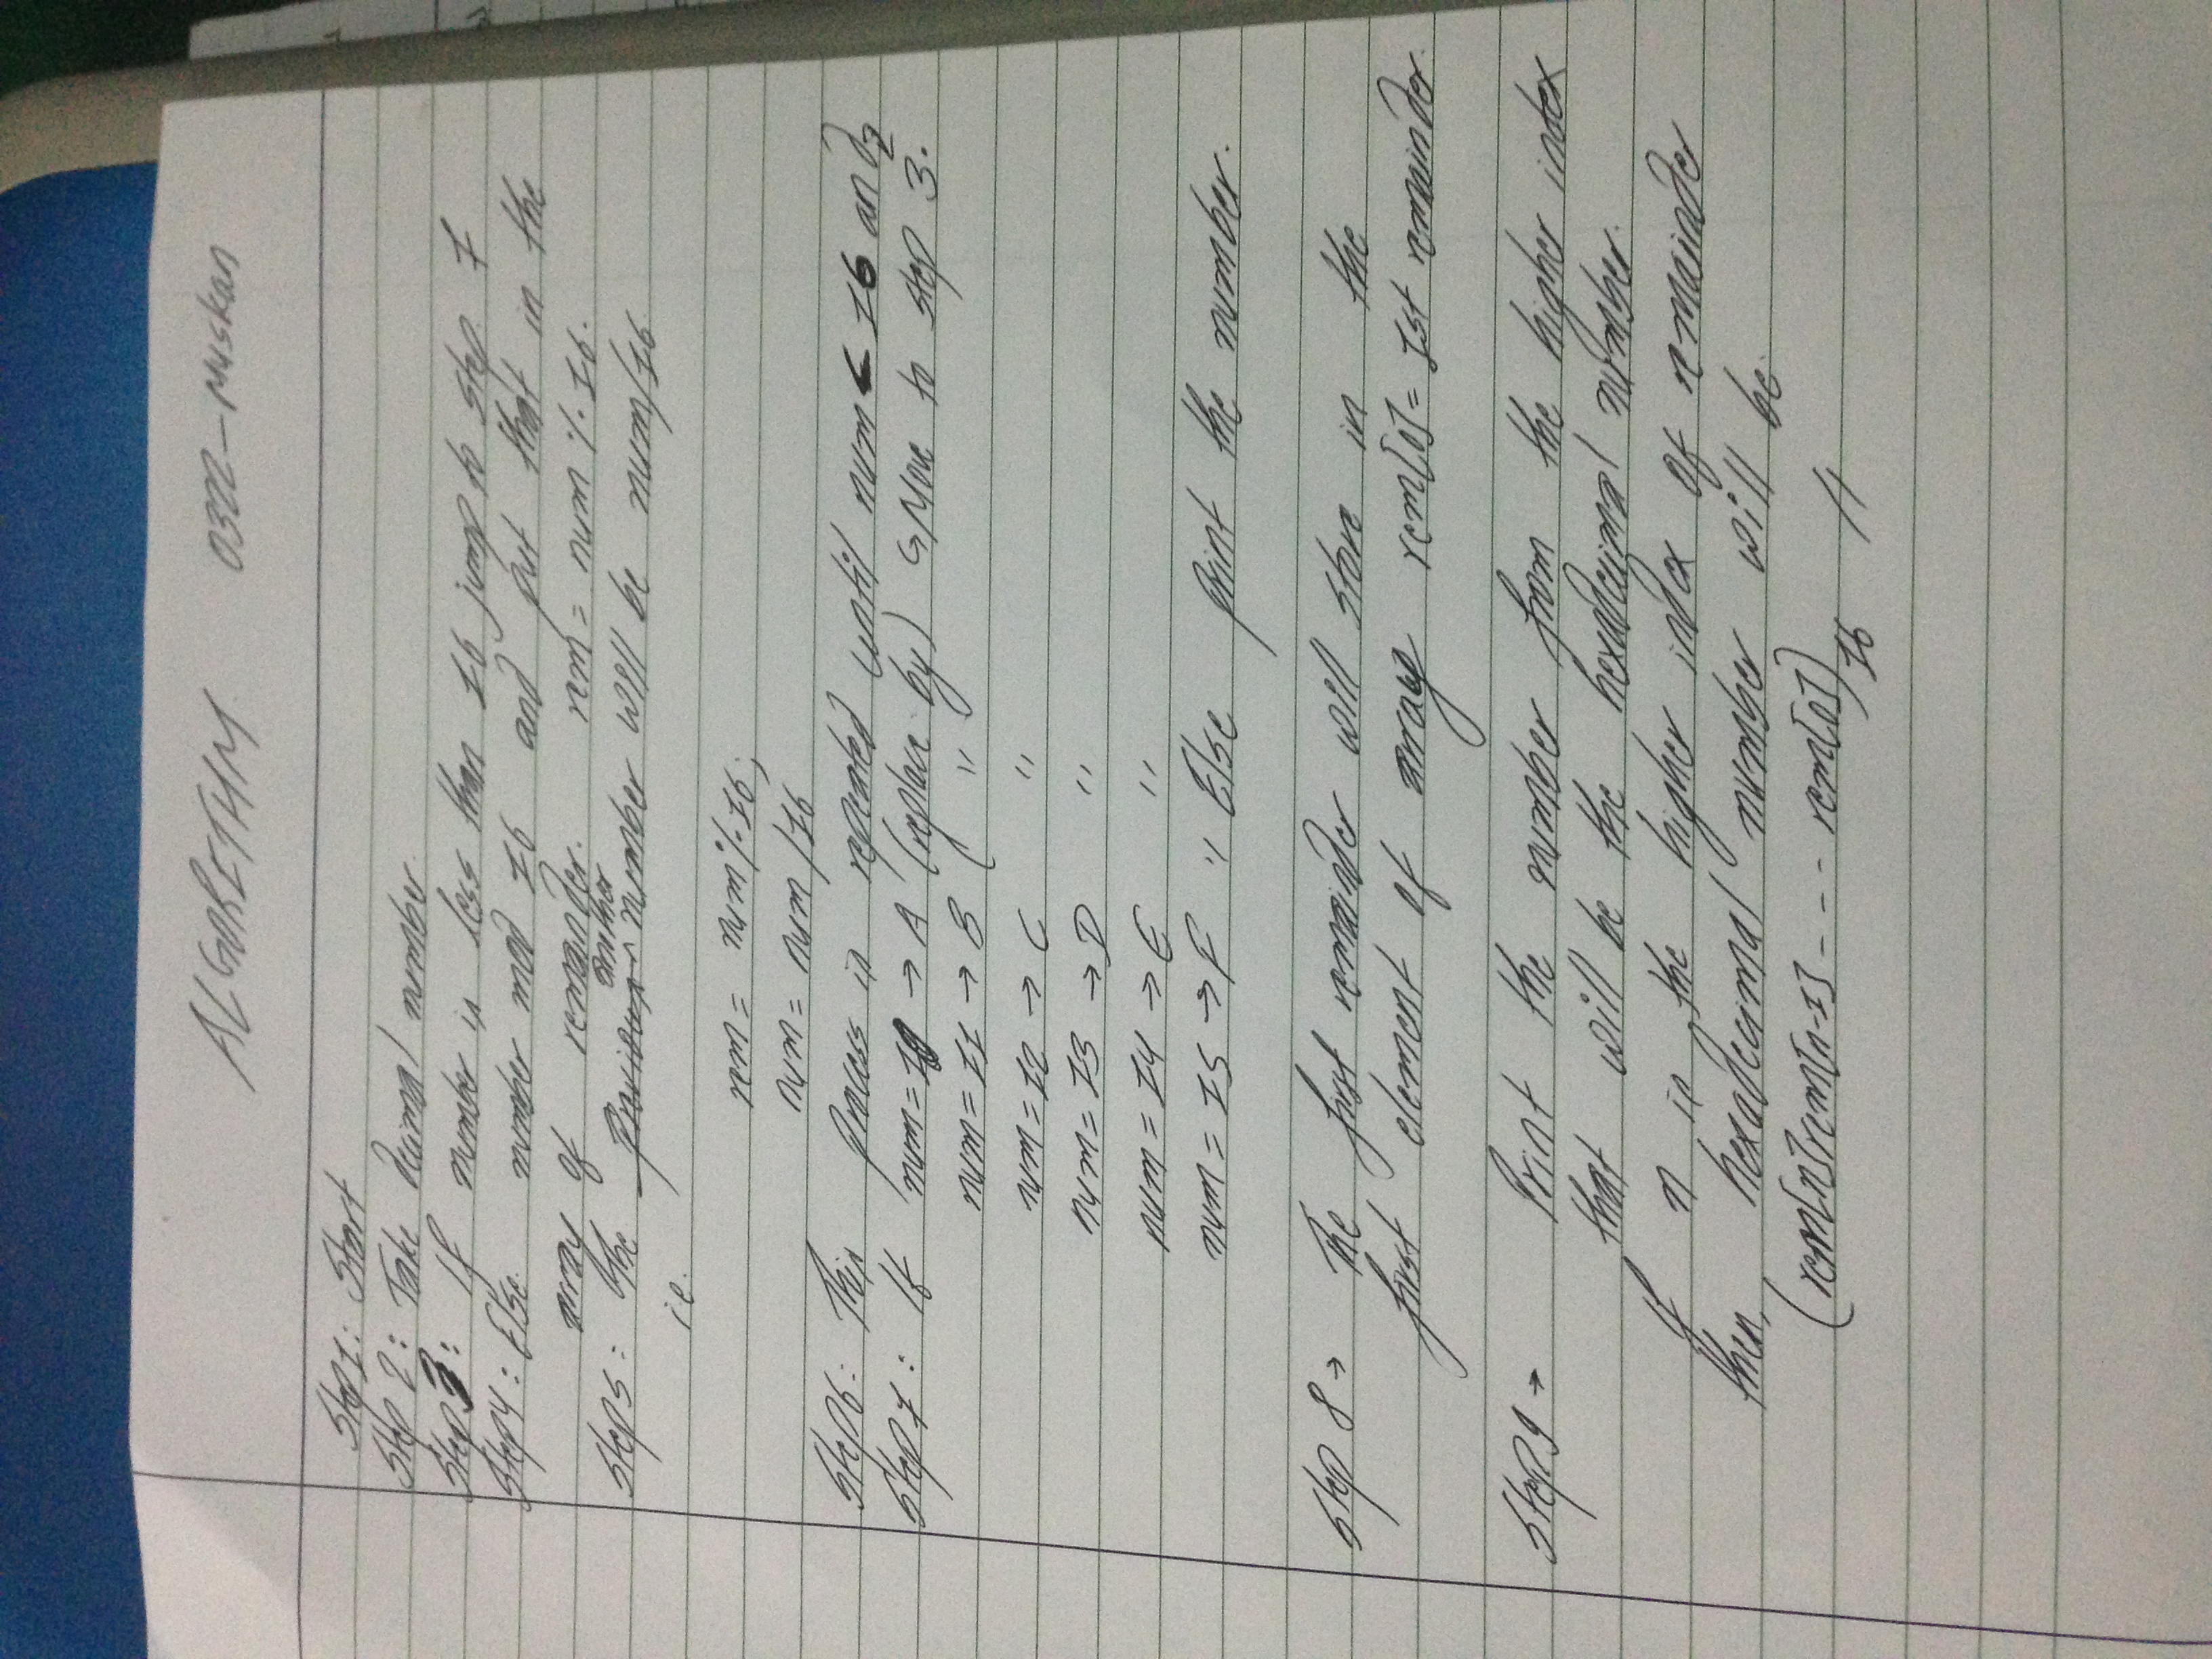 ALGORITHM 0322-Muskan
Step1: Start
Step 2: Take decimal number.
Step3: If number is less than 16 jump to step 7
Step4: Else number mod 16 and put that in the
array of remainder. rem = num %. 16.
Step5: the another number will be num/16
i.e.
rem = num %. 16;
num = num /16
Step6: This process is repeated until num < 16 and
↳ Move to step 3.
Step7: If num = 10 → A (replace by)
num = 11 → B ( "
num = 12 → C "
num = 13 → D "
num = 14 → E "
num = 15 → F " Else print the number.
Step 8 → The first remainder will store in the
first element of array rem[0] = 1st remainder.
Step9 → Print the number from the higher index
that will be the hexadecimal number.
If n is the higher index of remainder
then, hexadecimal number will be.
(rem[n]rem[n-1] - - - rem[0])16 //